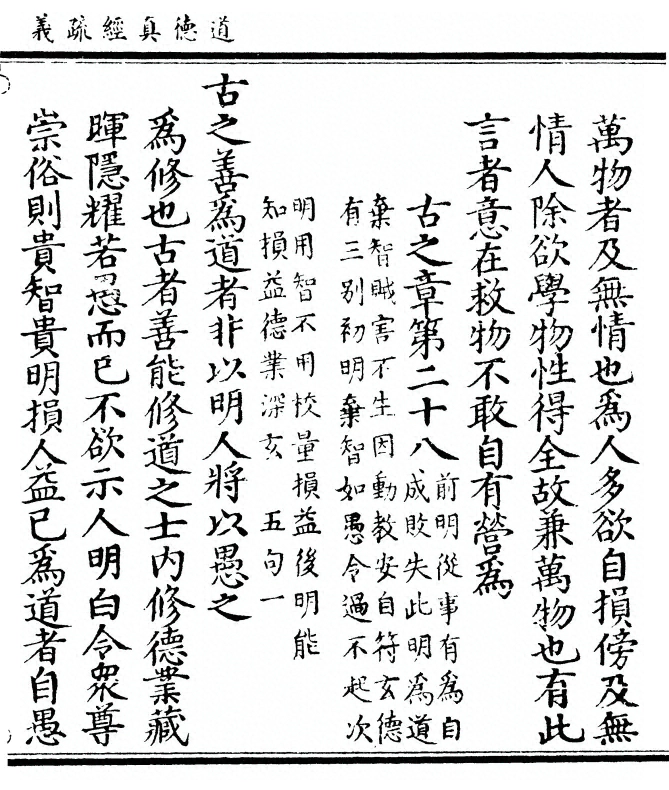 道德真經疏義
萬物者及無情也爲人多欲自損傍及無
情人除欲學物性得全故兼萬物也有此
言者意在救物不敢自有營爲
古之章第二十八
前明從事有爲自
成敗失此明爲道
棄智賊害不生因動教安自符玄德
有三別初明棄智如愚令過不起次
明用智不用校量損益後明能
知損益德業深玄 五句一
古之善爲道者非以明人將以愚之
爲修也古者善能修道之士内修德業藏
暉隱耀若愚而已不欲示人明白令衆尊
崇俗則貴智貴明損人益已爲道者自愚